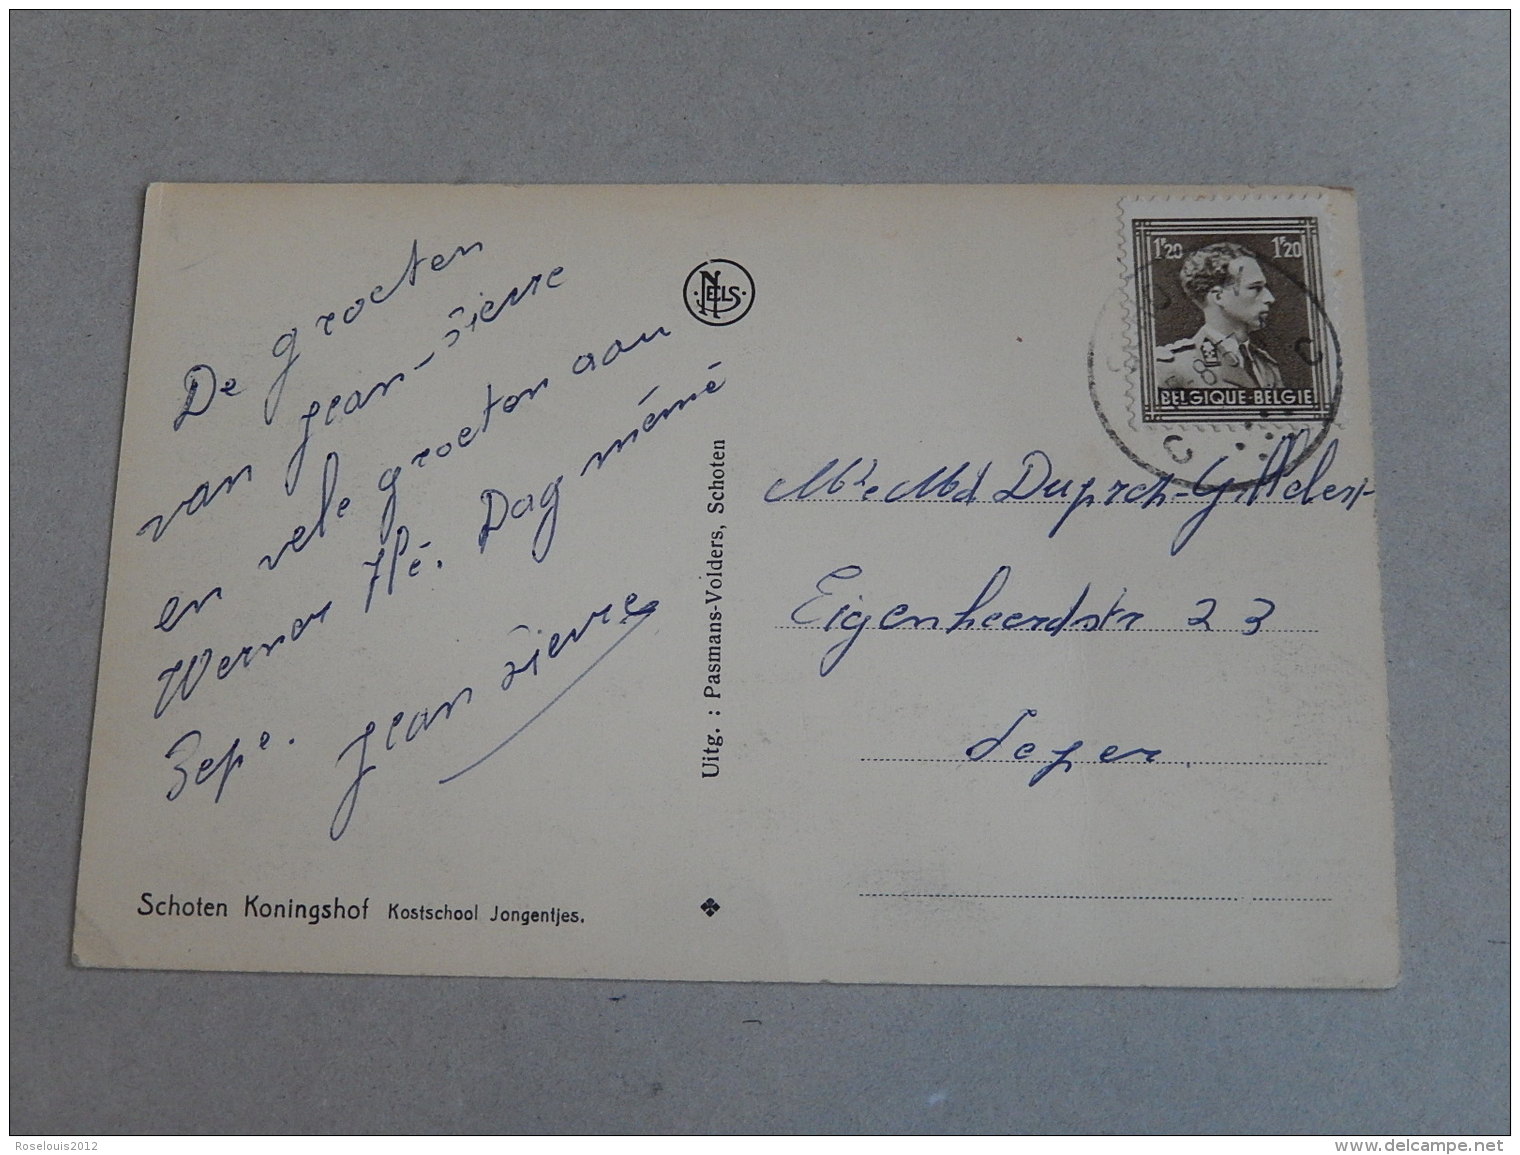 De groeten
van Jean-Pierre
en vele groeten aan
Werner Pépé. Dag mémé
Jean Pierre
Schoten Koningshof Kostschool Jongentjes.
NELS
Uitg. : Pasmans-Volders, Schoten
1F20 1F20
BELGIQUE-BELGIE
C C
Mr e Md Duprez-Gillelest
Eigenheerdstr 23
Ieper
Roselouis2012
www.delcampe.net